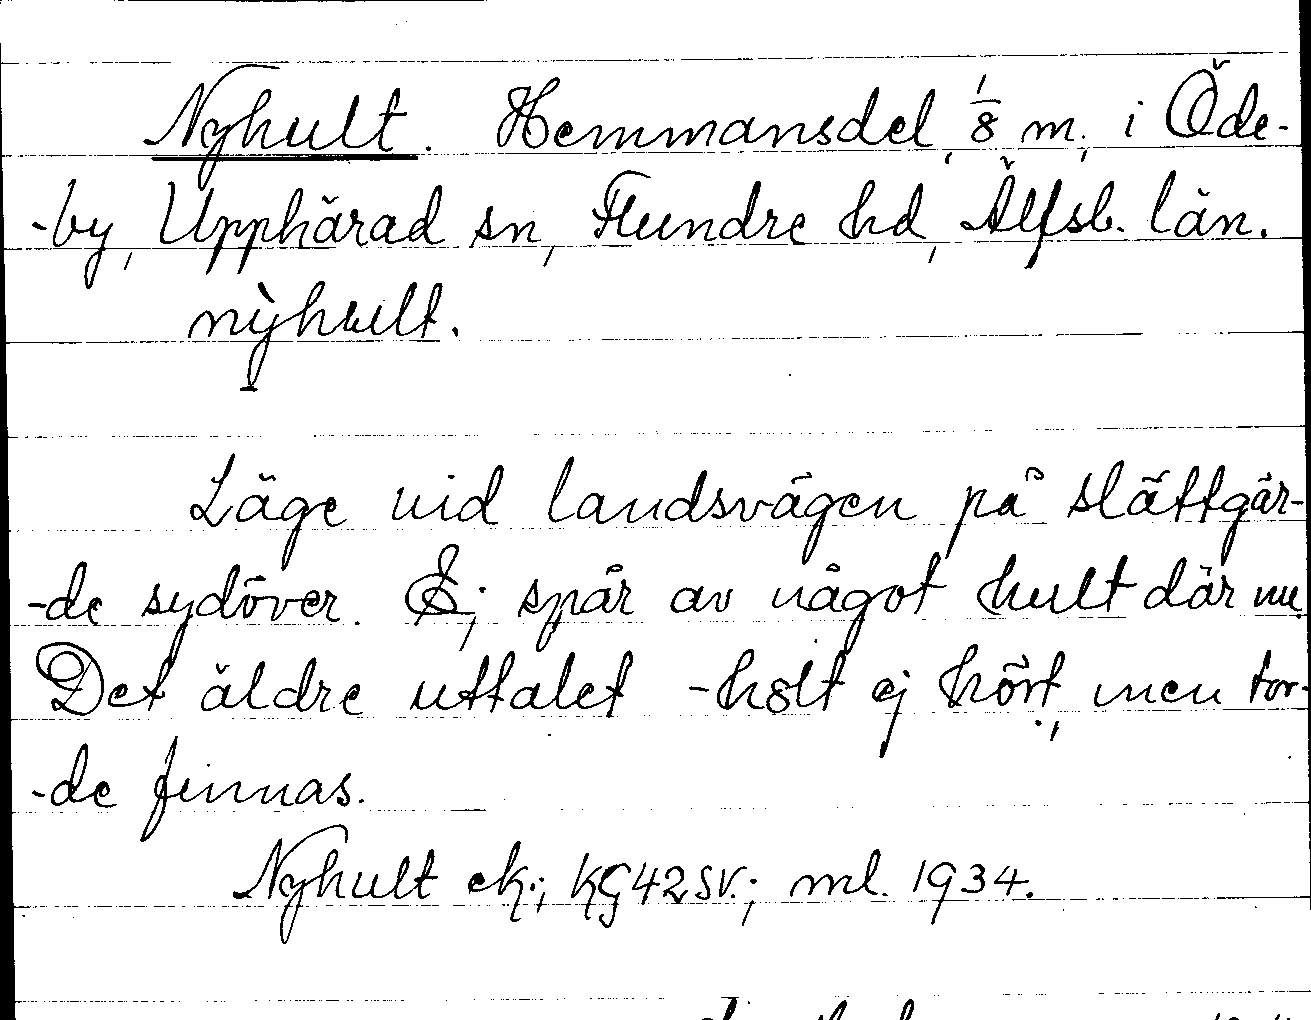 Nyhult. Hemmansdel, 1/8 m, i Öde-
-by, Upphärad sn, Flundre hd, Älfsb. län.
nỳhult.
Läge vid landsvägen på slättgär-
-de sydöver. Ej spår av något hult där nu.
Det äldre uttalet -hólt ej hört, men tor-
-de finnas.
Nyhult ek.; KG42SV.; ml. 1934.